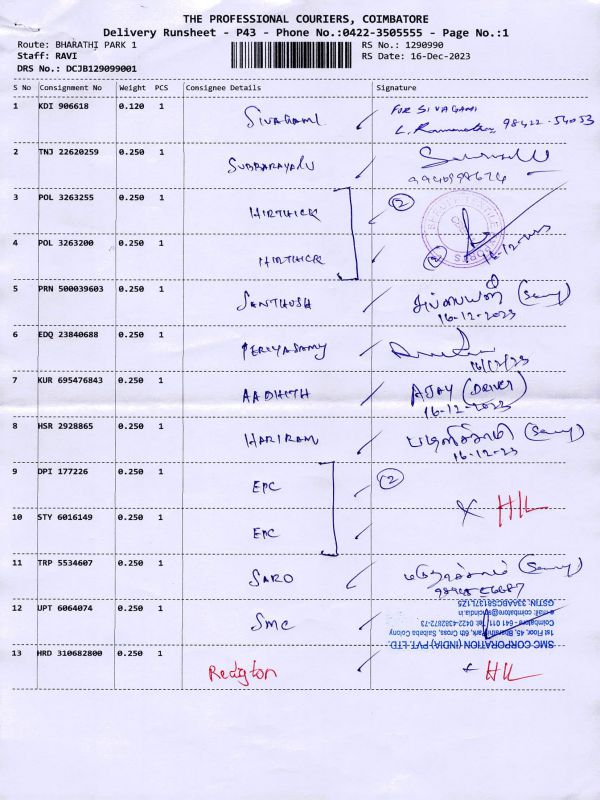 THE PROFESSIONAL COURIERS, COIMBATORE
Delivery Runsheet - P43 - Phone No.:0422-3505555 - Page No.:1
Route: BHARATHI PARK 1
RS No.: 1290990
Staff: RAVI
RS Date: 16-Dec-2023
DRS No.: DCJB129099001
S No Consignment No Weight PCS Consignee Details Signature
1 KDI 906618 0.120 1 SIVAGAMI FOR SIVAGAMI
98422-54053
2 TNJ 22620259 0.250 1 SUBBARAYALU
9940998674
3 POL 3263255 0.250 1 HIRTHICK 2
4 POL 3263200 0.250 1 HIRTHICK 2 16-12-
5 PRN 500039603 0.250 1 SANTHOSH
16-12-2023
6 EDQ 23840688 0.250 1 PERIYASAMY
16/12/23
7 KUR 695476843 0.250 1 AADHITH AJAY (DRIVER)
16-12-2023
8 HSR 2928865 0.250 1 HARIRAM
16-12-23
9 DPI 177226 0.250 1 EPC 2
10 STY 6016149 0.250 1 EPC X H/L
11 TRP 5534607 0.250 1 SARO
12 UPT 6064074 0.250 1 SMC
SMC CORPORATION (INDIA) PVT. LTD.
1st Floor, 45, Bharathi Park, 6th Cross, Saibaba Colony
Coimbatore - 641 011 Tel: 0422-4382672-73
GSTIN: 33AABCS8137L1Z5
13 HRD 310682800 0.250 1 Redigton x H/L